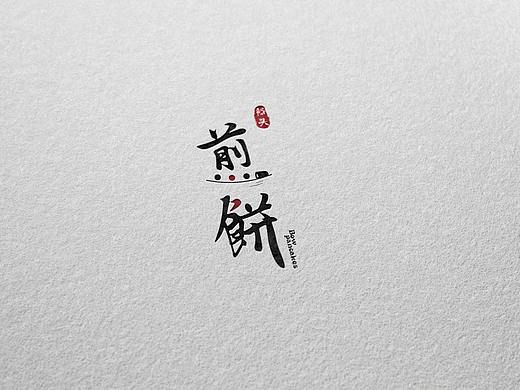 船头
煎
餅
Bow
pancakes